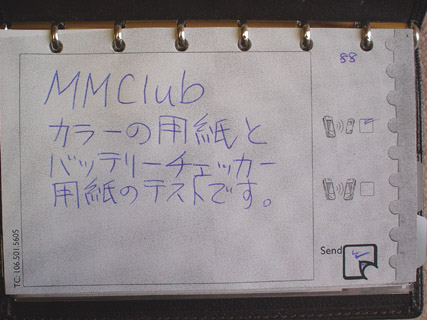 88
MMClub
カラーの用紙と
バッテリーチェッカー
用紙のテストです。
Send
TC: 106.501.5605